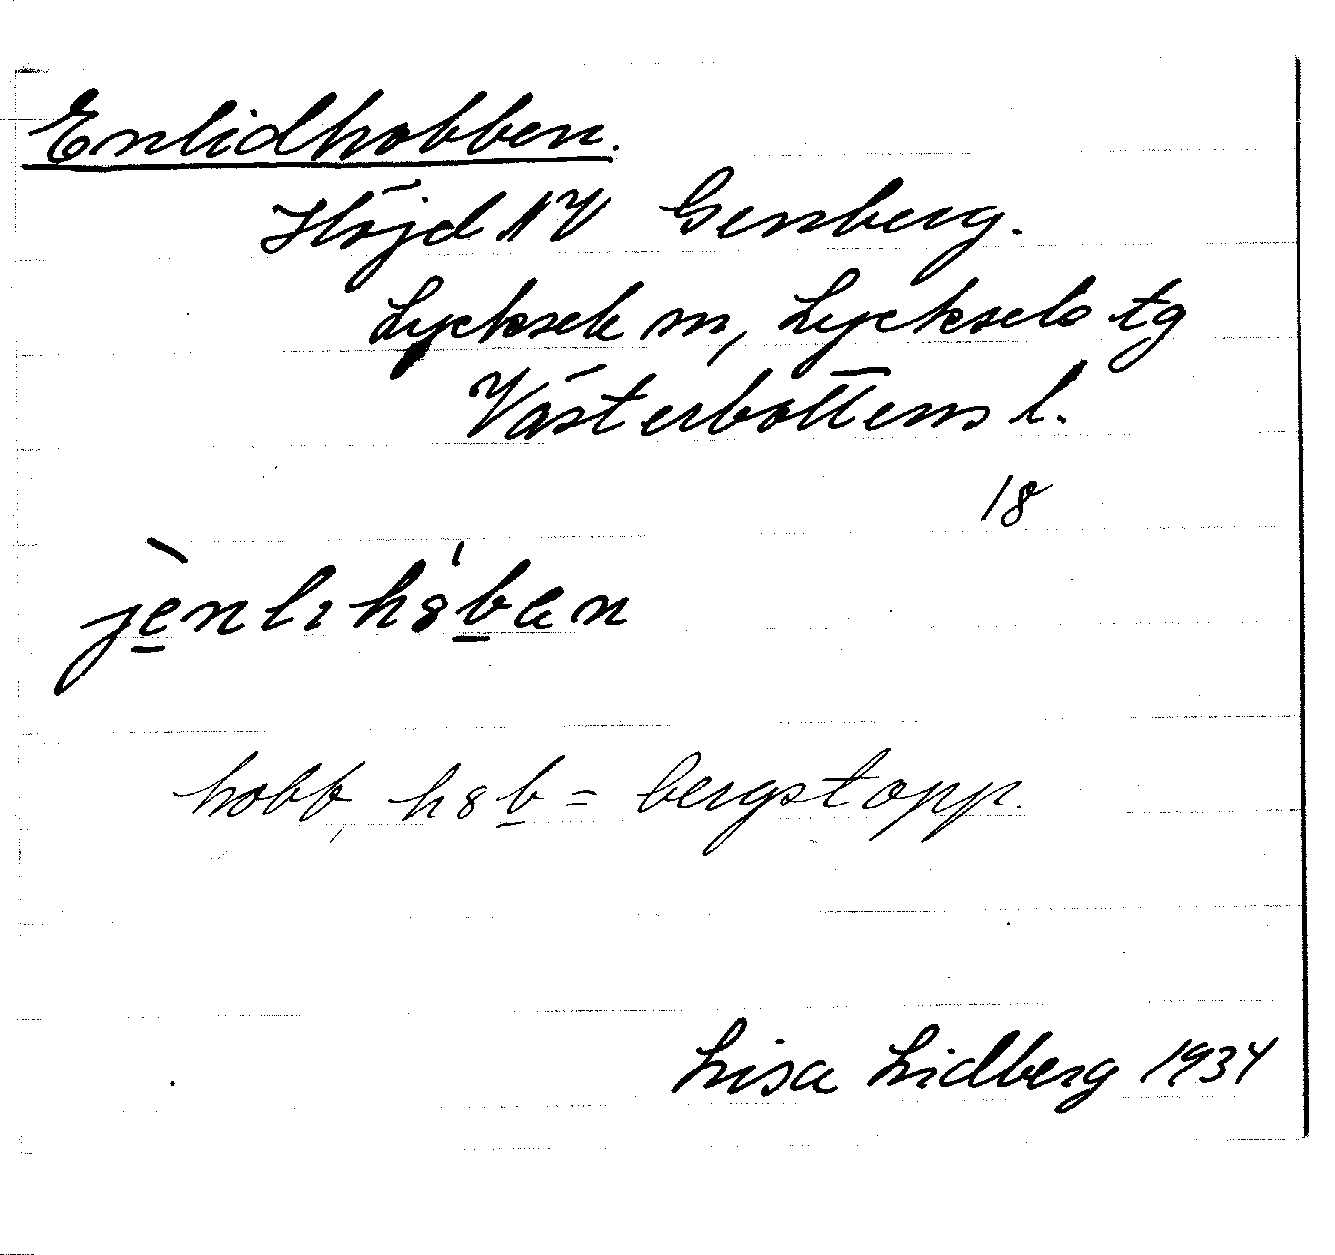 Enlidhobben.
Höjd NV Genberg.
Lycksele sn, Lycksele tg
Västerbottens l.
18
jènlıh8́bɐn
hobb, h8b = bergstopp.
Lisa Lidberg 1934